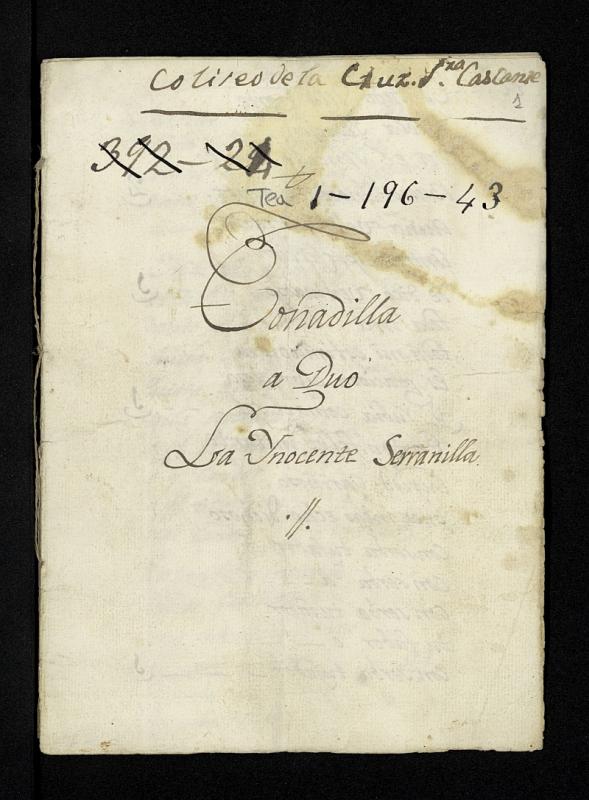 Coliseo de la Cruz. S.ra
1
392-24
t
Tea 1-196-43
Tonadilla
a Duo
La Ynocente Serranilla
.//.